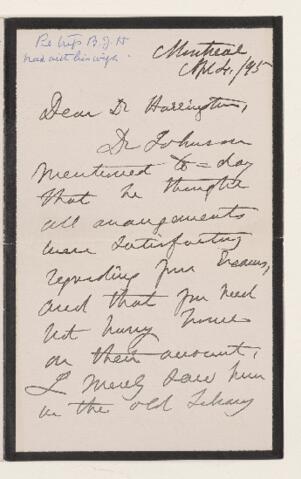 Re trip B.J.H
and his wife.
Montreal
Apl 4./95
Dear Dr Harrington,
Dr Johnson
mentioned to-day
that he thought
all arrangements
were satisfactory
regarding your Exams,
and that you need
not hurry home
on their account,
I merely saw him
in the old Library